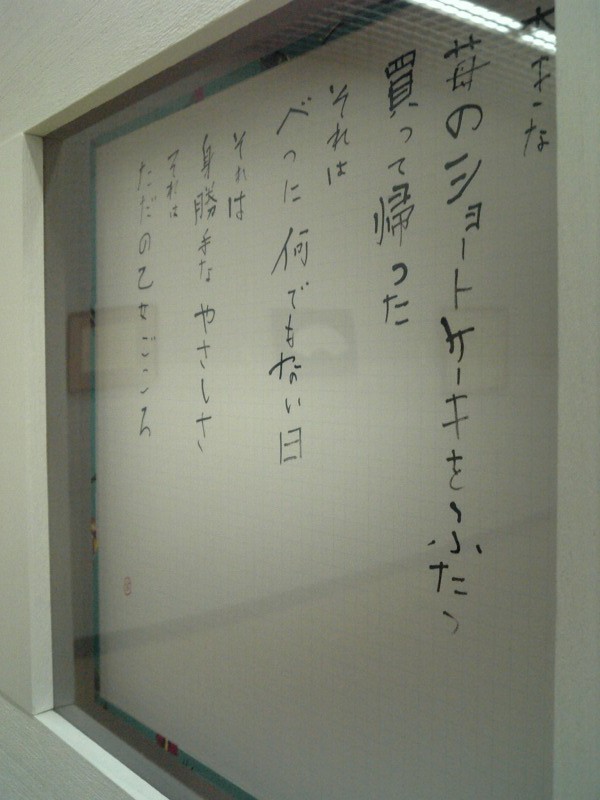 大きな
苺のショートケーキをふたつ
買って帰った
それは
べつに何でもない日
それは
身勝手なやさしさ
それは
ただの乙女ごころ